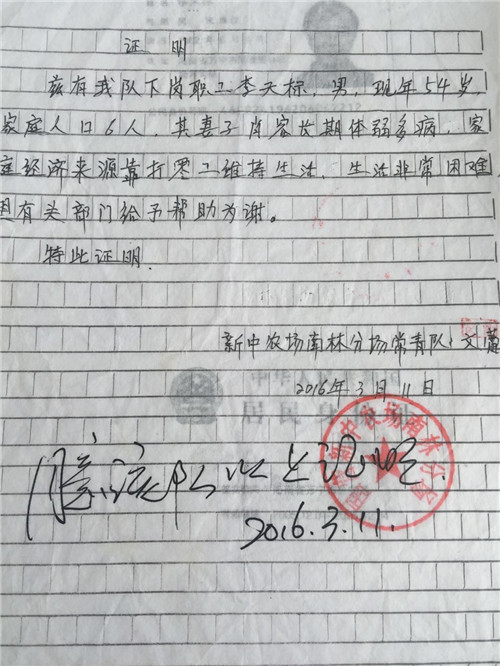 证 明
兹有我队下岗职工李天标，男，现年54岁，
家庭人口6人，其妻子肖容长期体弱多病，家
庭经济来源靠打零工维持生活，生活非常困难，
有关部门给予帮助为谢。
特此证明.
新中农场南林分场常青队：文
2016年3月11日
中华人民共和国
居民身份证
中农场南林分
队以上
2016.3.11.